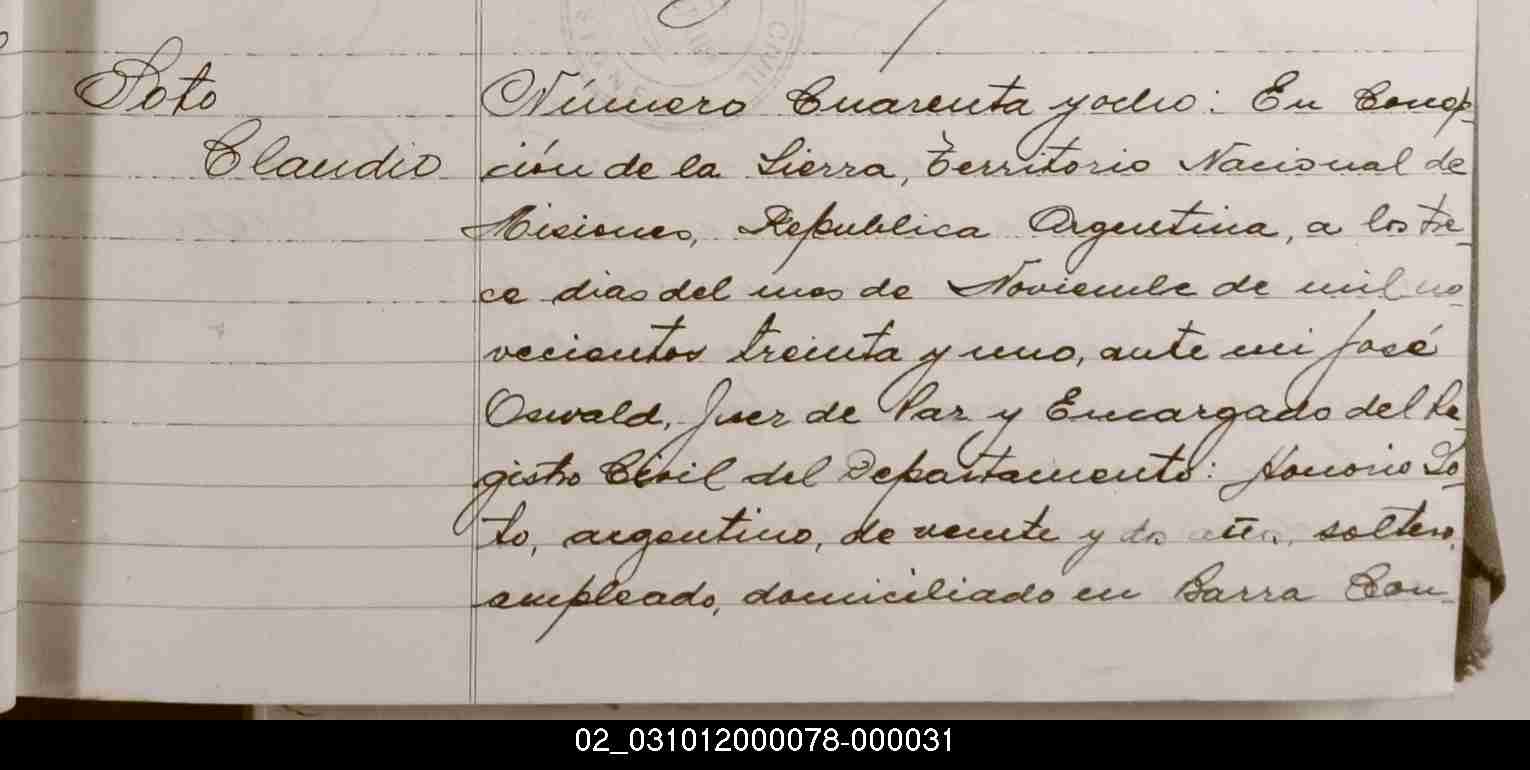 Soto
Claudio
Número Cuarenta y ocho: En Concep-
ción de la Sierra, Territorio Nacional de
Misiones, Republica Argentina, a los tre-
ce dias del mes de Noviembre de mil no-
vecientos treinta y uno, ante mi José
Oswald, Juez de Paz y Encargado del Re-
gistro Civil del Departamento: Honorio So-
to, argentino, de veinte y dos años, soltero,
empleado, domiciliado en Barra Con-
CIVIL
02_031012000078-000031